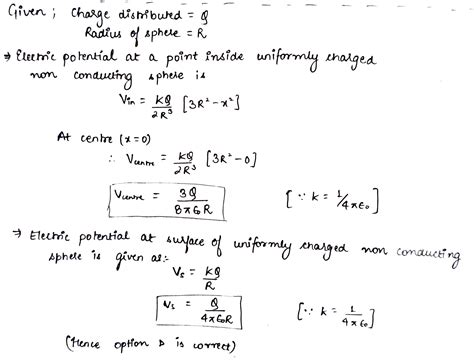 Given ; Charge distributed = Q
Radius of sphere = R
⇒ Electric potential at a point inside uniformly charged
non conducting sphere is
Vin = kQ/2R³ [3R² - x²]
At centre (x = 0)
∴ Vcentre = kQ/2R³ [3R² - 0]
Vcentre = 3Q/8πε₀R [∵ k = 1/4πε₀]
⇒ Electric potential at surface of uniformly charged non conducting
sphere is given as:-
Vs = kQ/R
Vs = Q/4πε₀R [∵ k = 1/4πε₀]
(Hence option D is correct)